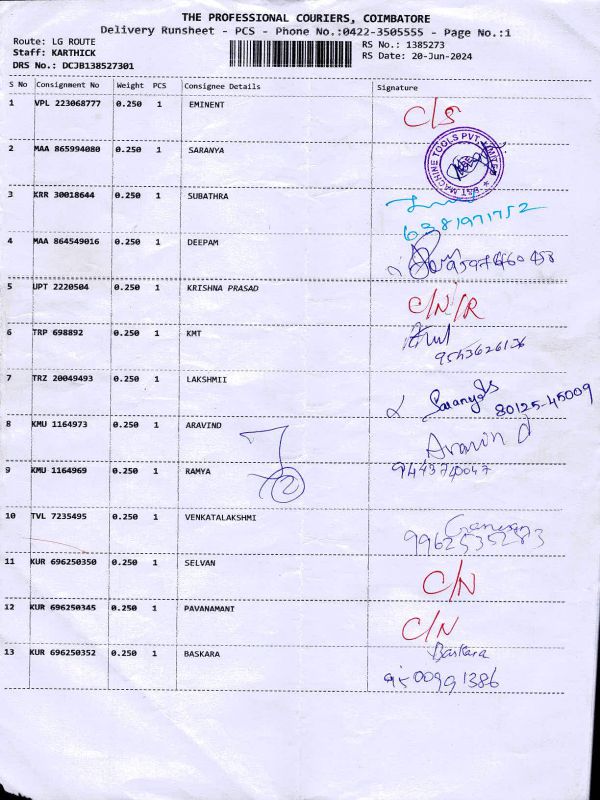 THE PROFESSIONAL COURIERS, COIMBATORE
Delivery Runsheet - PCS - Phone No.:0422-3505555 - Page No.:1
Route: LG ROUTE RS No.: 1385273
Staff: KARTHICK RS Date: 20-Jun-2024
DRS No.: DCJB138527301
S No Consignment No Weight PCS Consignee Details Signature
1 VPL 223068777 0.250 1 EMINENT C/S
2 MAA 865994080 0.250 1 SARANYA MACHINE TOOLS PVT.
3 KRR 30018644 0.250 1 SUBATHRA
6381971752
4 MAA 864549016 0.250 1 DEEPAM
5 UPT 2220504 0.250 1 KRISHNA PRASAD C/N/R
6 TRP 698892 0.250 1 KMT
7 TRZ 20049493 0.250 1 LAKSHMII Saranya 80125-45009
8 KMU 1164973 0.250 1 ARAVIND Aravin d
9 KMU 1164969 0.250 1 RAMYA 9443740047
10 TVL 7235495 0.250 1 VENKATALAKSHMI Ganesan
11 KUR 696250350 0.250 1 SELVAN C/N
12 KUR 696250345 0.250 1 PAVANAMANI C/N
13 KUR 696250352 0.250 1 BASKARA Baskara
9500991386